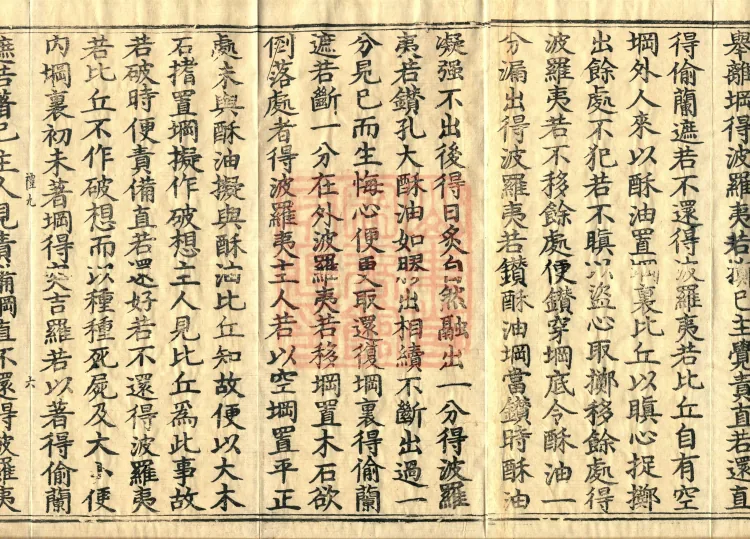 舉離堈得波羅夷若擲已主覺責直若還直
得偷蘭遮若不還得波羅夷若比丘自有空
堈外人來以酥油置堈裏比丘以瞋心捉擲
出餘處不犯若不瞋以盜心取擲移餘處得
波羅夷若不移餘處便鑽穿堈底令酥油一
分漏出得波羅夷若鑽酥油堈當鑽時酥油
凝强不出後得日炙自然融出一分得波羅
夷若鑽孔大酥油如膠出相續不斷出過一
分見已而生悔心便更取還復堈裏得偷蘭
遮若斷一分在外波羅夷若移堈置木石欲
倒落處者得波羅夷主人若以空堈置平正
處未與酥油擬與酥油比丘知故便以大木
石揩置堈擬作破想主人見比丘爲此事故
若破時便責備直若還好若不還得波羅夷
若比丘不作破想而以種種死屍及大小便
內堈裏初未著堈得突吉羅若以著得偷蘭
禮九 六
遮若著已主人見責備堈直不還得波羅夷